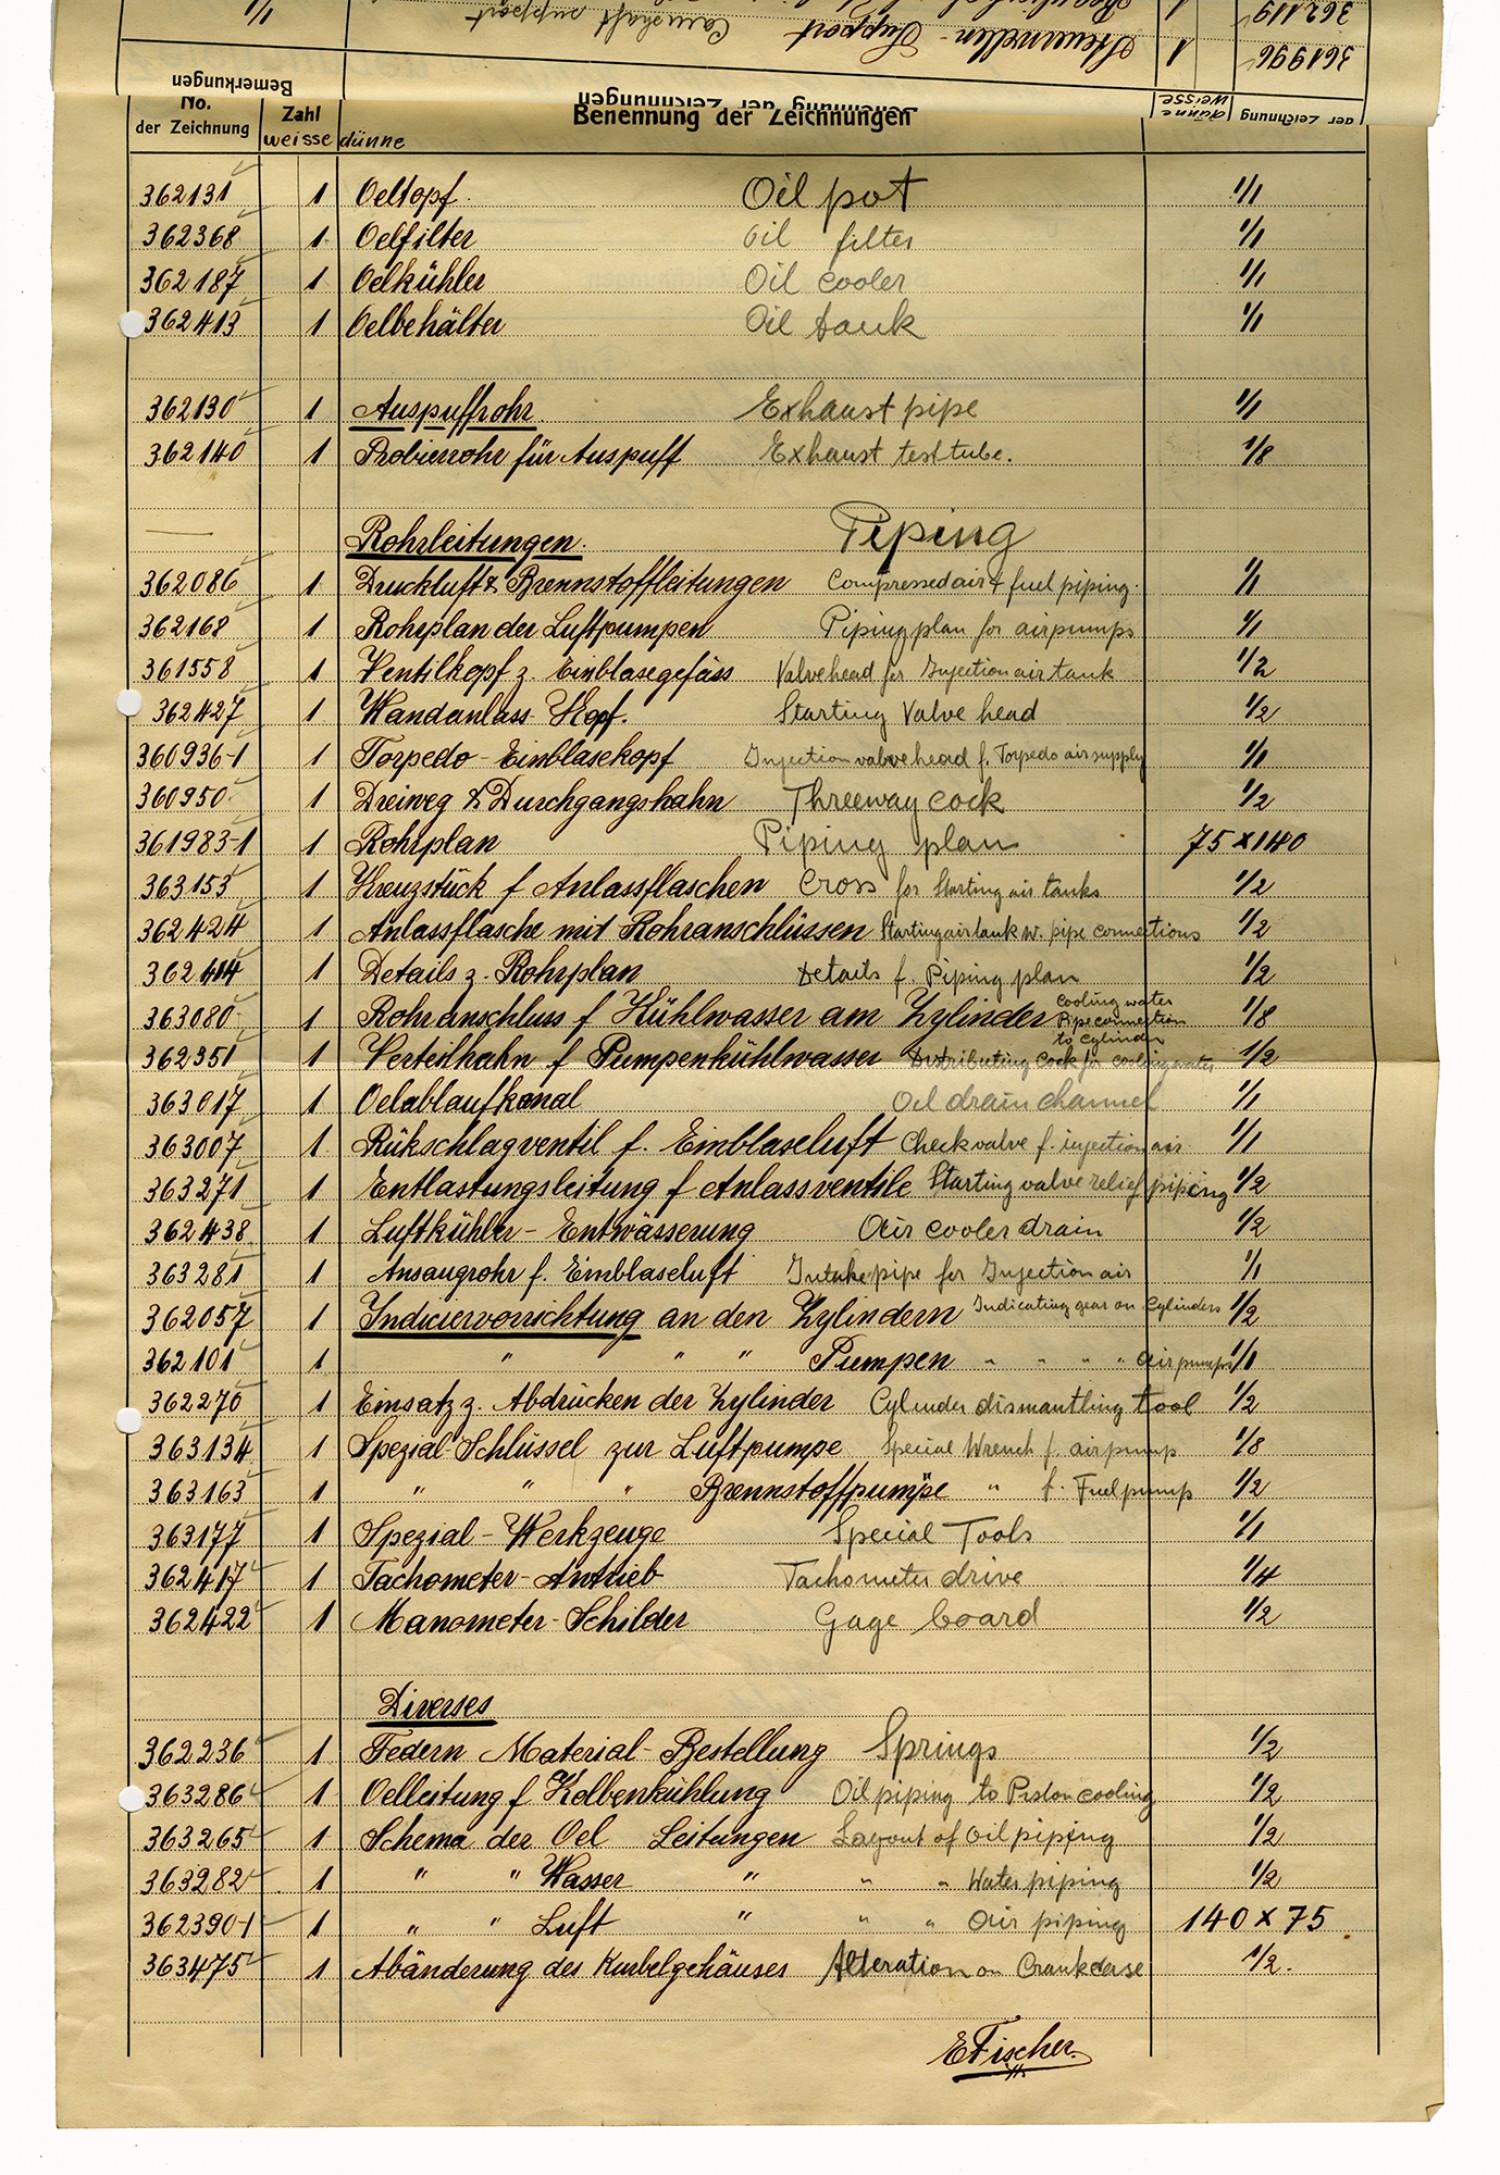 362119 1
1/1
361996 1 Steuerwellen-Support Camshaft support
der Zeichnung dünne weisse Benennung der Zeichnungen Bemerkungen
No. der Zeichnung Zahl weisse dünne Benennung der Zeichnungen
362131 1 Oeltopf. Oil pot 1/1
362368 1 Oelfilter Oil filter 1/1
362187 1 Oelkühler Oil cooler 1/1
362413 1 Oelbehälter Oil tank 1/1
362130 1 Auspuffrohr Exhaust pipe 1/1
362140 1 Probierrohr für Auspuff Exhaust test tube. 1/8
— Rohrleitungen. Piping
362086 1 Druckluft & Brennstoffleitungen Compressed air & fuel piping. 1/1
362168 1 Rohrplan der Luftpumpen Piping plan for airpumps 1/1
361558 1 Ventilkopf z. Einblasegefäss Valvehead for Injection air tank 1/2
362427 1 Wandanlass-Kopf. Starting Valve head 1/2
360936-1 1 Torpedo-Einblasekopf Injection valve head f. Torpedo air supply 1/1
360950 1 Dreiweg & Durchgangshahn Threeway cock 1/2
361983-1 1 Rohrplan Piping plan 75 x 140
363153 1 Kreuzstück f Anlassflaschen Cross for Starting air tanks 1/2
362424 1 Anlassflasche mit Rohranschlüssen Starting air tank w. pipe connections 1/2
362414 1 Details z. Rohrplan Details f. Piping plan 1/2
363080 1 Rohranschluss f Kühlwasser am Zylinder Cooling water Pipe connection to cylinder 1/8
362351 1 Verteilhahn f Pumpenkühlwasser Distributing Cock for cooling water 1/2
363017 1 Oelablaufkanal Oil drain channel 1/1
363007 1 Rükschlagventil f. Einblaseluft Check valve f. injection air 1/1
363271 1 Entlastungsleitung f Anlassventile Starting valve relief piping 1/2
362438 1 Luftkühler-Entwässerung Air cooler drain 1/2
363281 1 Ansaugrohr f. Einblaseluft Intake pipe for Injection air 1/1
362057 1 Indiciervorrichtung an den Zylindern Indicating gear on Cylinders 1/2
362101 1 " " " Pumpen " " " " air pumps 1/1
362270 1 Einsatz z. Abdrücken der Zylinder Cylinder dismantling tool 1/2
363134 1 Spezial-Schlüssel zur Luftpumpe Special Wrench f. airpump 1/8
363163 1 " " " Brennstoffpumpe " f. Fuel pump 1/2
363177 1 Spezial-Werkzeuge Special Tools 1/1
362417 1 Tachometer-Antrieb Tachometer drive 1/4
362422 1 Manometer-Schilder Gage board 1/2
Diverses
362236 1 Federn Material-Bestellung Springs 1/2
363286 1 Oelleitung f Kolbenkühlung Oil piping to Piston cooling 1/2
363265 1 Schema der Oel Leitungen Layout of Oil piping 1/2
363282 1 " " Wasser " " " Water piping 1/2
362390-1 1 " " Luft " " " Air piping 140 x 75
363475 1 Abänderung des Kurbelgehäuses Alteration on Crankcase 1/2.
E Fischer.